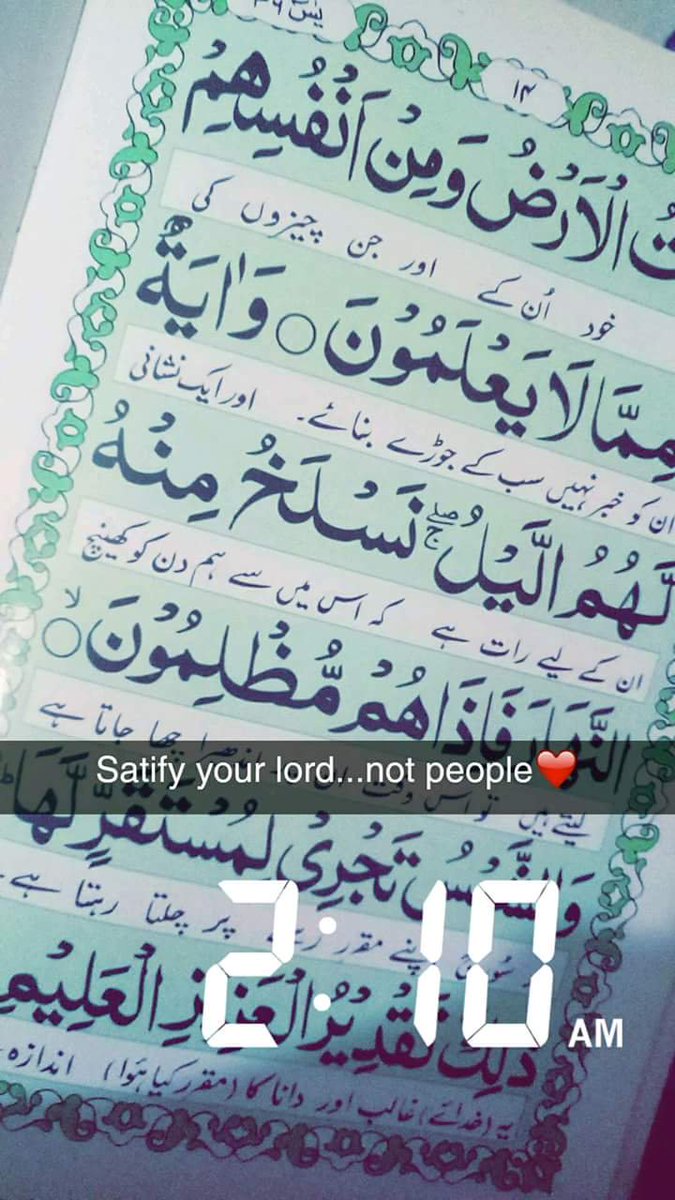 ۱۴
الْاَرْضُ وَمِنْ اَنْفُسِهِمْ
خود اُن کے اور جن چیزوں کی
مِمَّا لَا يَعْلَمُوْنَ ○ وَاٰيَةٌ
ان کو خبر نہیں سب کے جوڑے بنائے۔ اور ایک نشانی
لَّهُمُ الَّيْلُ ۖۚ نَسْلَخُ مِنْهُ
ان کے لیے رات ہے کہ اس میں سے ہم دن کو کھینچ
النَّهَارَ فَاِذَا هُمْ مُّظْلِمُوْنَ ○
لیتے ہیں تو اس وقت ان چھا جاتا ہے
Satify your lord...not people❤️
وَالشَّمْسُ تَجْرِيْ لِمُسْتَقَرٍّ لَّهَا
سورج اپنے مقرر پر چلتا رہتا ہے۔
2:10 AM
ذٰلِكَ تَقْدِيْرُ الْعَزِيْزِ الْعَلِيْمِ
یہ (خدائے) غالب اور دانا کا (مقرر کیا ہوا) اندازہ